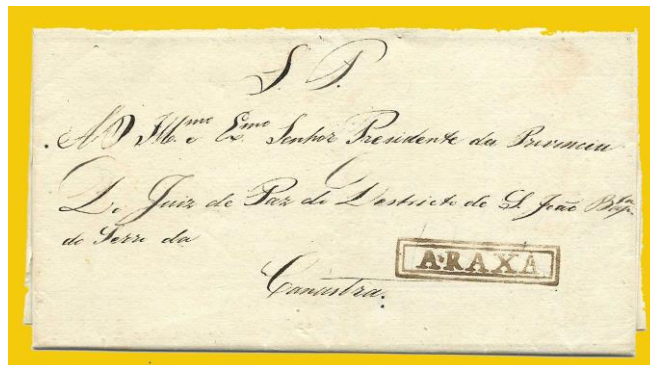 S. P.
AO Ill.mo e Ex.mo Senhor Presidente da Provincia
Do Juiz de Paz do Destricto de S. João Bap.ta
da Serra da
ARAXÁ
Canastra.